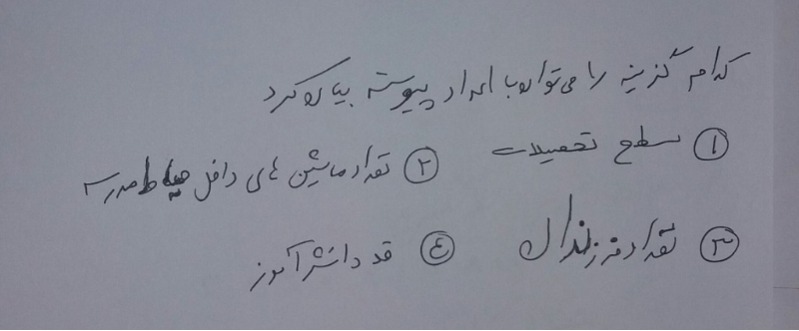 کدام گزینه را می‌توان با اعداد پیوسته بیان کرد
① سطح تحصیلات ② تعداد ماشین های داخل حیاط مدرسه
③ تعداد فرزندان ④ قد دانش آموز